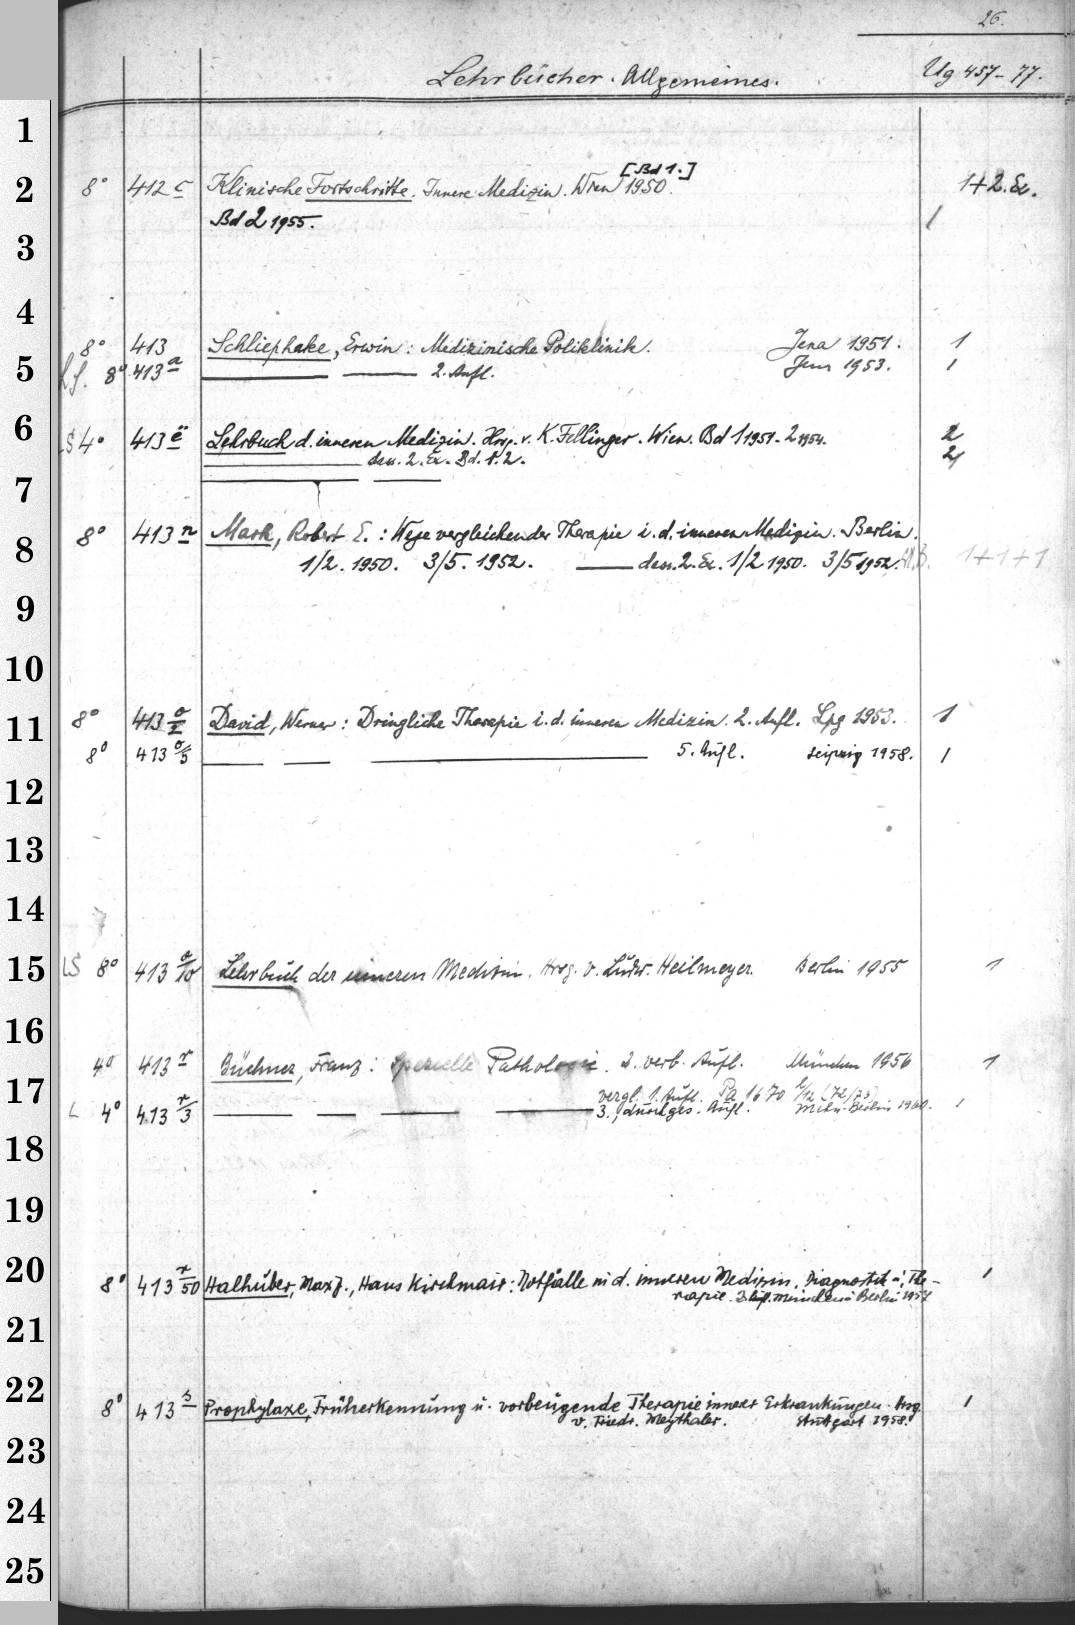 26.
Lehrbücher. Allgemeines. Ug 457-77.
1
2 8° 412 c Klinische Fortschritte. Innere Medizin. Wien [Bd 1.] 1950. 1+2. Ex.
Bd 2 1955. 1
3
4
8° 413 Schliephake, Erwin: Medizinische Poliklinik. Jena 1951. 1
5 8° 413 a 2. Aufl. Jena 1953. 1
6 LS 4° 413 e Lehrbuch d. inneren Medizin. Hrsg. v. K. Fellinger. Wien. Bd 1 1951. 2 1954. 2
dass. 2. Ex. Bd. 1. 2. 2
7
8° 413 n Mark, Robert E.: Wege vergleichender Therapie i. d. inneren Medizin. Berlin.
8 1/2. 1950. 3/5. 1952. dass. 2. Ex. 1/2 1950. 3/5 1952. 1+1+1
9
10
11 8° 413 o/I David, Werner: Dringliche Therapie i. d. inneren Medizin. 2. Aufl. Lpg 1953. 1
8° 413 o/5 5. Aufl. Leipzig 1958. 1
12
13
14
15 LS 8° 413 o/10 Lehrbuch der inneren Medizin. Hrsg. v. Ludw. Heilmeyer. Berlin 1955 1
16
4° 413 r Büchner, Franz: Spezielle Pathologie. 2. verb. Aufl. München 1956 1
17 vergl. 1. Aufl. Pa 1670
L 4° 413 r/3 3., durchges. Aufl. Mchn. Berlin 1960. 1
18
19
20 8° 413 r/50 Halhuber, Max J., Hans Kirchmair: Notfälle in d. inneren Medizin. Diagnostik u. The-
rapie. 3. Aufl. München Berlin 1957 1
21
22 8° 413 s Prophylaxe, Früherkennung u. vorbeugende Therapie innerer Erkrankungen. Hrsg. 1
v. Friedr. Meythaler. Stuttgart 1958.
23
24
25